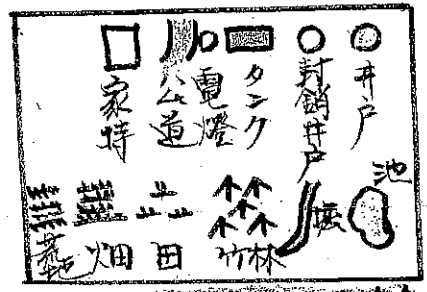 井戸
封鎖井戸
タンク
電燈
公道
家特
池
堀
竹林
田
畑